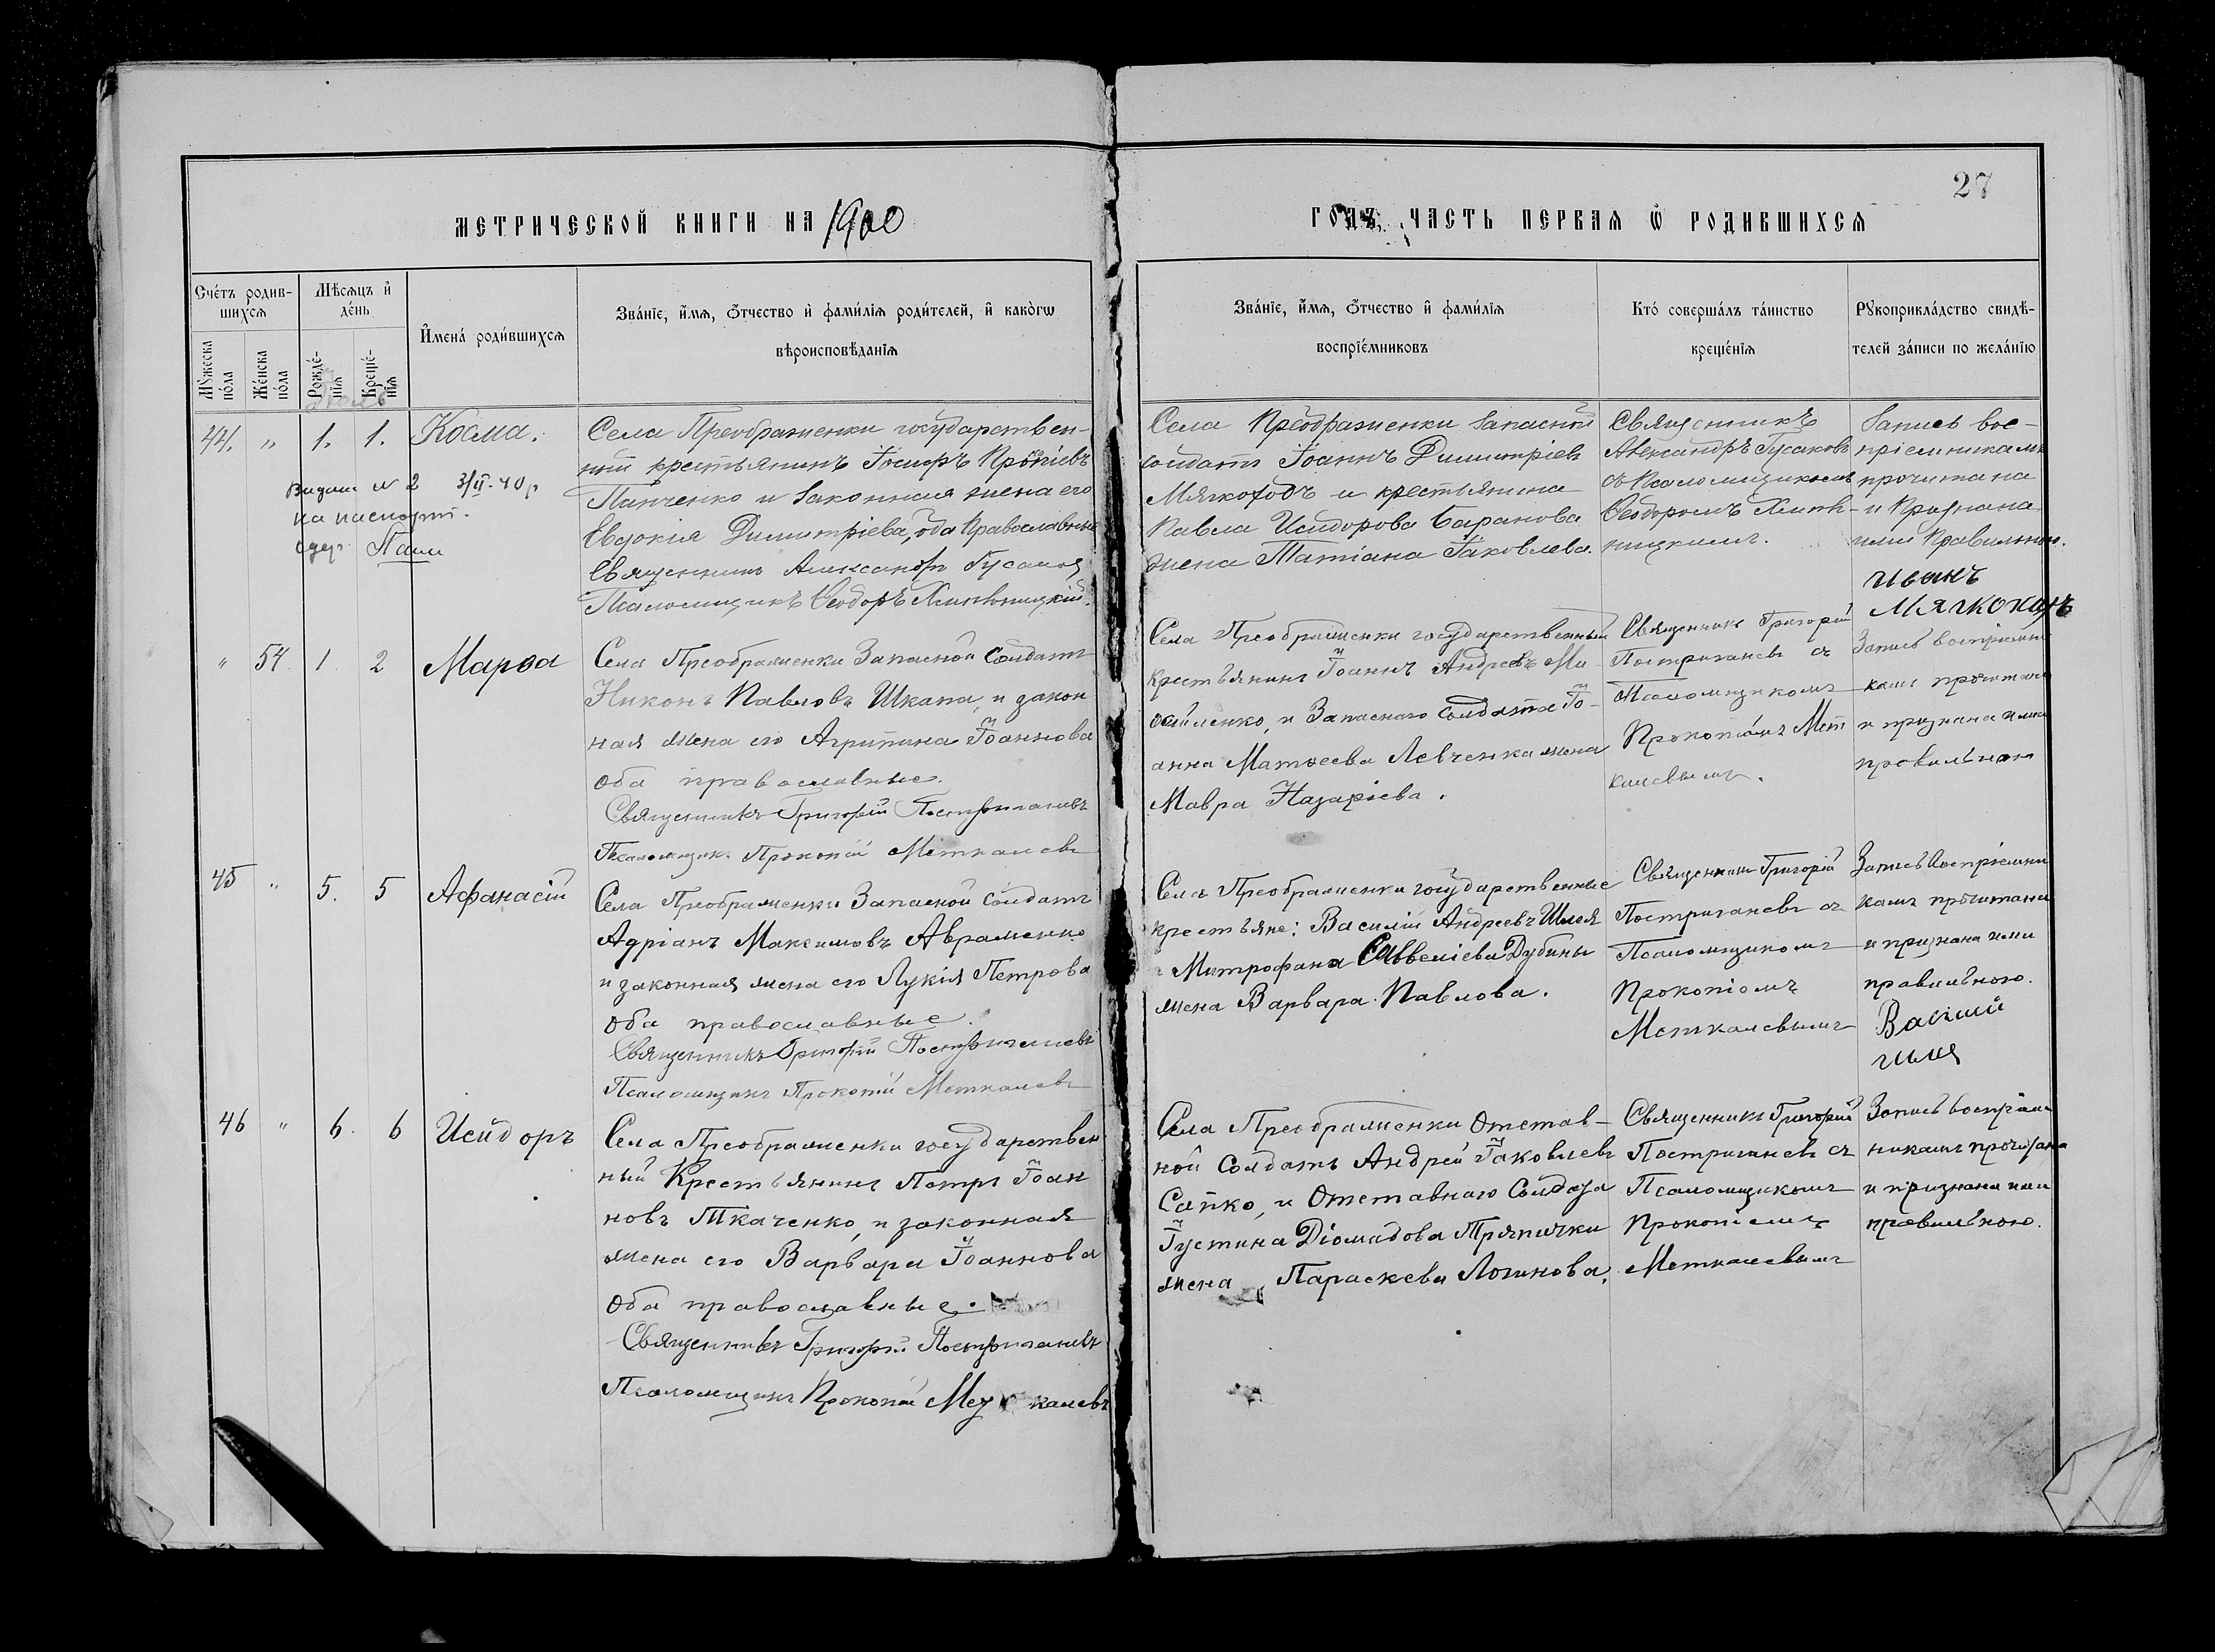 27
МЕТРИЧЕСКОЙ КНИГИ НА 1900
ГОДЪ, ЧАСТЬ ПЕРВАЯ Ѡ РОДИВШИХСЯ
Счетъ родив-
шихся
Мѣсяцъ и
день
Имена родившихся
Званіе, имя, отчество и фамилія родителей, и какогѡ
вѣроисповѣданія
Мужеска
пола
Женска
пола
Рожде-
нія
Креще-
нія
Званіе, имя, отчество и фамилія
воспріемниковъ
Кто совершалъ таинство
крещенія
Рукоприкладство свидѣ-
телей записи по желанію
44. " 1. 1. Косма.
Села Преображенки государствен-
ный крестьянинъ Прокпіевъ
Панченко и законная жена его
Евдокія Димитріева, оба православные
Священникъ Александръ Гусаковъ
Псаломщикъ Ѳеодоръ
Видано № 2 3/II-40р
на паспорт.
Села Преображенки запасный
солдатъ Іоаннъ Димитріевъ
Мягкоходъ и крестьянина
Павла Исидорова Баранова
жена Татіана Іаковлева.
Священникъ
Александръ Гусаковъ
съ Псаломщикомъ
Ѳеодоромъ
ницкимъ.
Запись вос-
пріемникамъ
прочитана
и признана
ими правильною.
Иванъ
" 54 1. 2 Марѳа
Села Преображенки Запасной Солдатъ
Никонъ Павловъ Шкапа, и закон
ная жена его Агрипина Іоаннова
оба православные.
Священникъ Григорій Постриганевъ
Псаломщикъ Прокопій Меткалевъ
Села Преображенки государственный
крестьянинъ Іоаннъ Андреевъ Ми-
, и Запаснаго Солдата Іо-
анна Матѳеева Левченка жена
Мавра Назаріева.
Священникъ Григорій
Постриганевъ съ
Псаломщикомъ
Прокопіемъ Мет
калевымъ.
Запись воспріемни
камъ прочитана
и признана ими
правильною
45 " 5. 5 Афанасій
Села Преображенки Запасной Солдатъ
Адріанъ Максимовъ Авраменко
и законная жена его Лукія Петрова
оба православные.
Священникъ Григорій Постриганевъ
Псаломщикъ Прокопій Меткалевъ
Села Преображенки государственные
крестьяне: Василій Андреевъ
и Митрофана Савеліева Дубины
жена Варвара Павлова.
Священникъ Григорій
Постриганевъ съ
Псаломщикомъ
Прокопіомъ
Меткалевымъ
Запись Воспріемни
камъ прочитана
и признана ими
правильною.
46 " 6. 6 Исидоръ
Села Преображенки государствен
ный Крестьянинъ Петръ Іоан
новъ Ткаченко, и законная
жена его Варвара Іоаннова
оба православные.
Священникъ Григорій Постриганевъ
Псаломщикъ Прокопій Меткалевъ
Села Преображенки Отстав-
ной Солдатъ Андрей Іаковлевъ
Сапко, и Отставнаго Солдата
Іустина Діомидова Тряпички
жена Параскева Логинова.
Священникъ Григорій
Постриганевъ съ
Псаломщикомъ
Прокопіемъ
Меткалевымъ
Запись воспріем
никамъ прочитана
и признана ими
правильною.